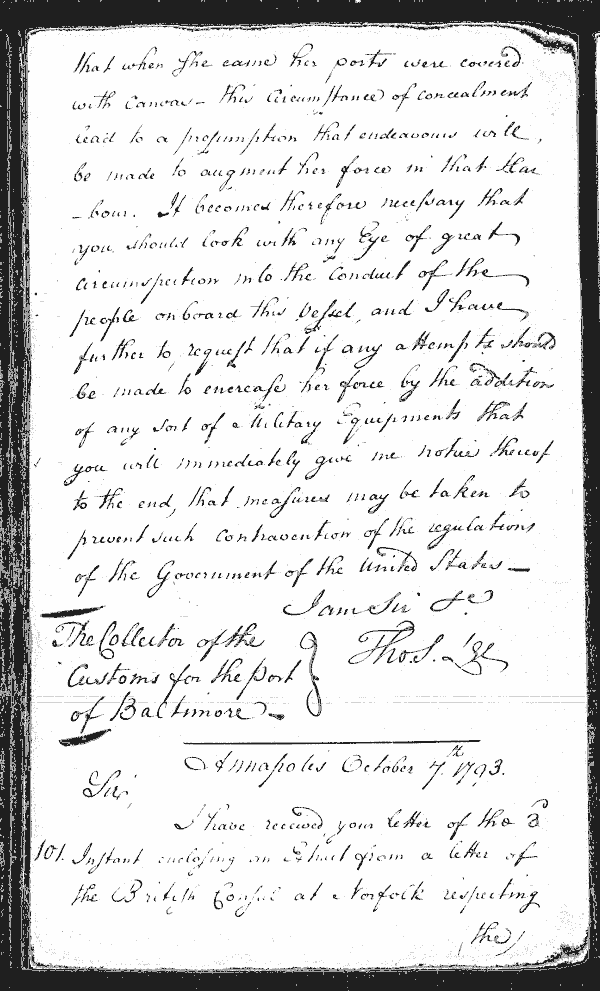 that when she came her ports were covered
with Canvas – this Circumstance of concealment
lead to a presumption that endeavours will,
be made to augment her force in that Har
-bour. It becomes therefore necessary that
you should look with any Eye of great
circumspection into the Conduct of the
people onboard this Vessel, and I have
further to, request that if any attempts should
be made to encrease her force by the addition
of any sort of Military Equipments that
you will immediately give me notice thereof
to the end, that measures may be taken to
prevent such contravention of the regulations
of the Government of the United States —
I am Sir &c
The Collector of the
Customs for the port
of Baltimore —
Tho. S. Lee
Annapolis October 7th. 1793.
Sir,
I have received your letter of the 3
101. Instant enclosing an Extract from a letter of
the British Consul at Norfolk respecting
the